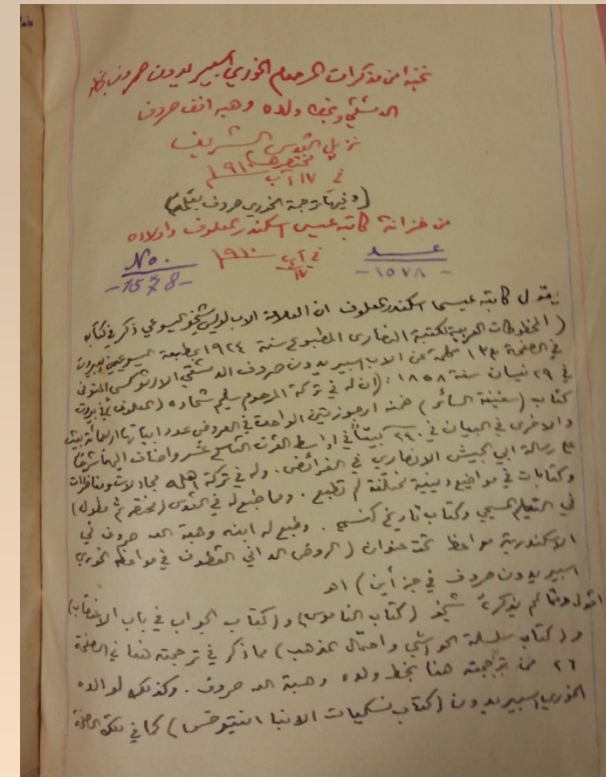 نخبة من مذكرات المرحوم الخوري اسبيريدون صروف
الدمشقي وبخط ولده وهبه الله صروف
نزيل القدس الشريف
مختصرها
في ١٧ آب ١٩١٠م
(وفيها ترجمة الخوري صروف بقلمه)
من خزانة كاتبه عيسى اسكندر المعلوف واولاده
No. في آب ١٩١٠م عدد
-1578- ١٧ -١٥٧٨-
يقول كاتبه عيسى اسكندر المعلوف ان العلامة الاب لويس شيخو اليسوعي ذكر في كتابه
(المخطوطات العربية لكتبة النصارى المطبوع سنة ١٩٢٤ بمطبعة اليسوعيين ببيروت
في الصفحة ١٣٣ كلمة عن الاب اسبيريدون صروف الدمشقي الارثوذكسي المتوفى
في ٢٩ نيسان سنة ١٨٥٨: (ان له في تركة المرحوم سليم شحاده (المعلوف) في بيروت
كتاب (سفينة السائر) ضمنه ارجوزتين الواحدة في العروض عدد ابياتها المائة بيت
والاخرى في البيان في ٢٣٠ بيتًا في اواسط القرن التاسع عشر واضاف اليها شرحًا
على رسالة ابي الجيش الانصاري في الفرائض. وله في تركة مجادلات ومناظرات
وكتابات في مواضيع دينية مختلفة لم تطبع. ومما طبع له في القدس (مختصر ومطول)
في التعليم المسيحي وكتاب تاريخ كنسي. وطبع له ابنه وهبة الله صروف في
الاسكندرية مواعظ تحت عنوان (الروض الداني القطوف في مواعظ الخوري
اسبيريدون صروف في جزأين) اهـ
اقول ومما لم يذكره شيخو (كتاب الناموس) و(كتاب الجواب في باب الاغتصاب)
و(كتاب سلسلة الحواشي واحتمال المذهب) مما ذكر في ترجمته هنا في الصفحة
٢٦ من ترجمته هنا بخط ولده وهبة الله صروف. وكذلك لوالده
الخوري اسبيريدون (كتاب نسكيات الانبا انتيوخس) كما في تلك الصفحة